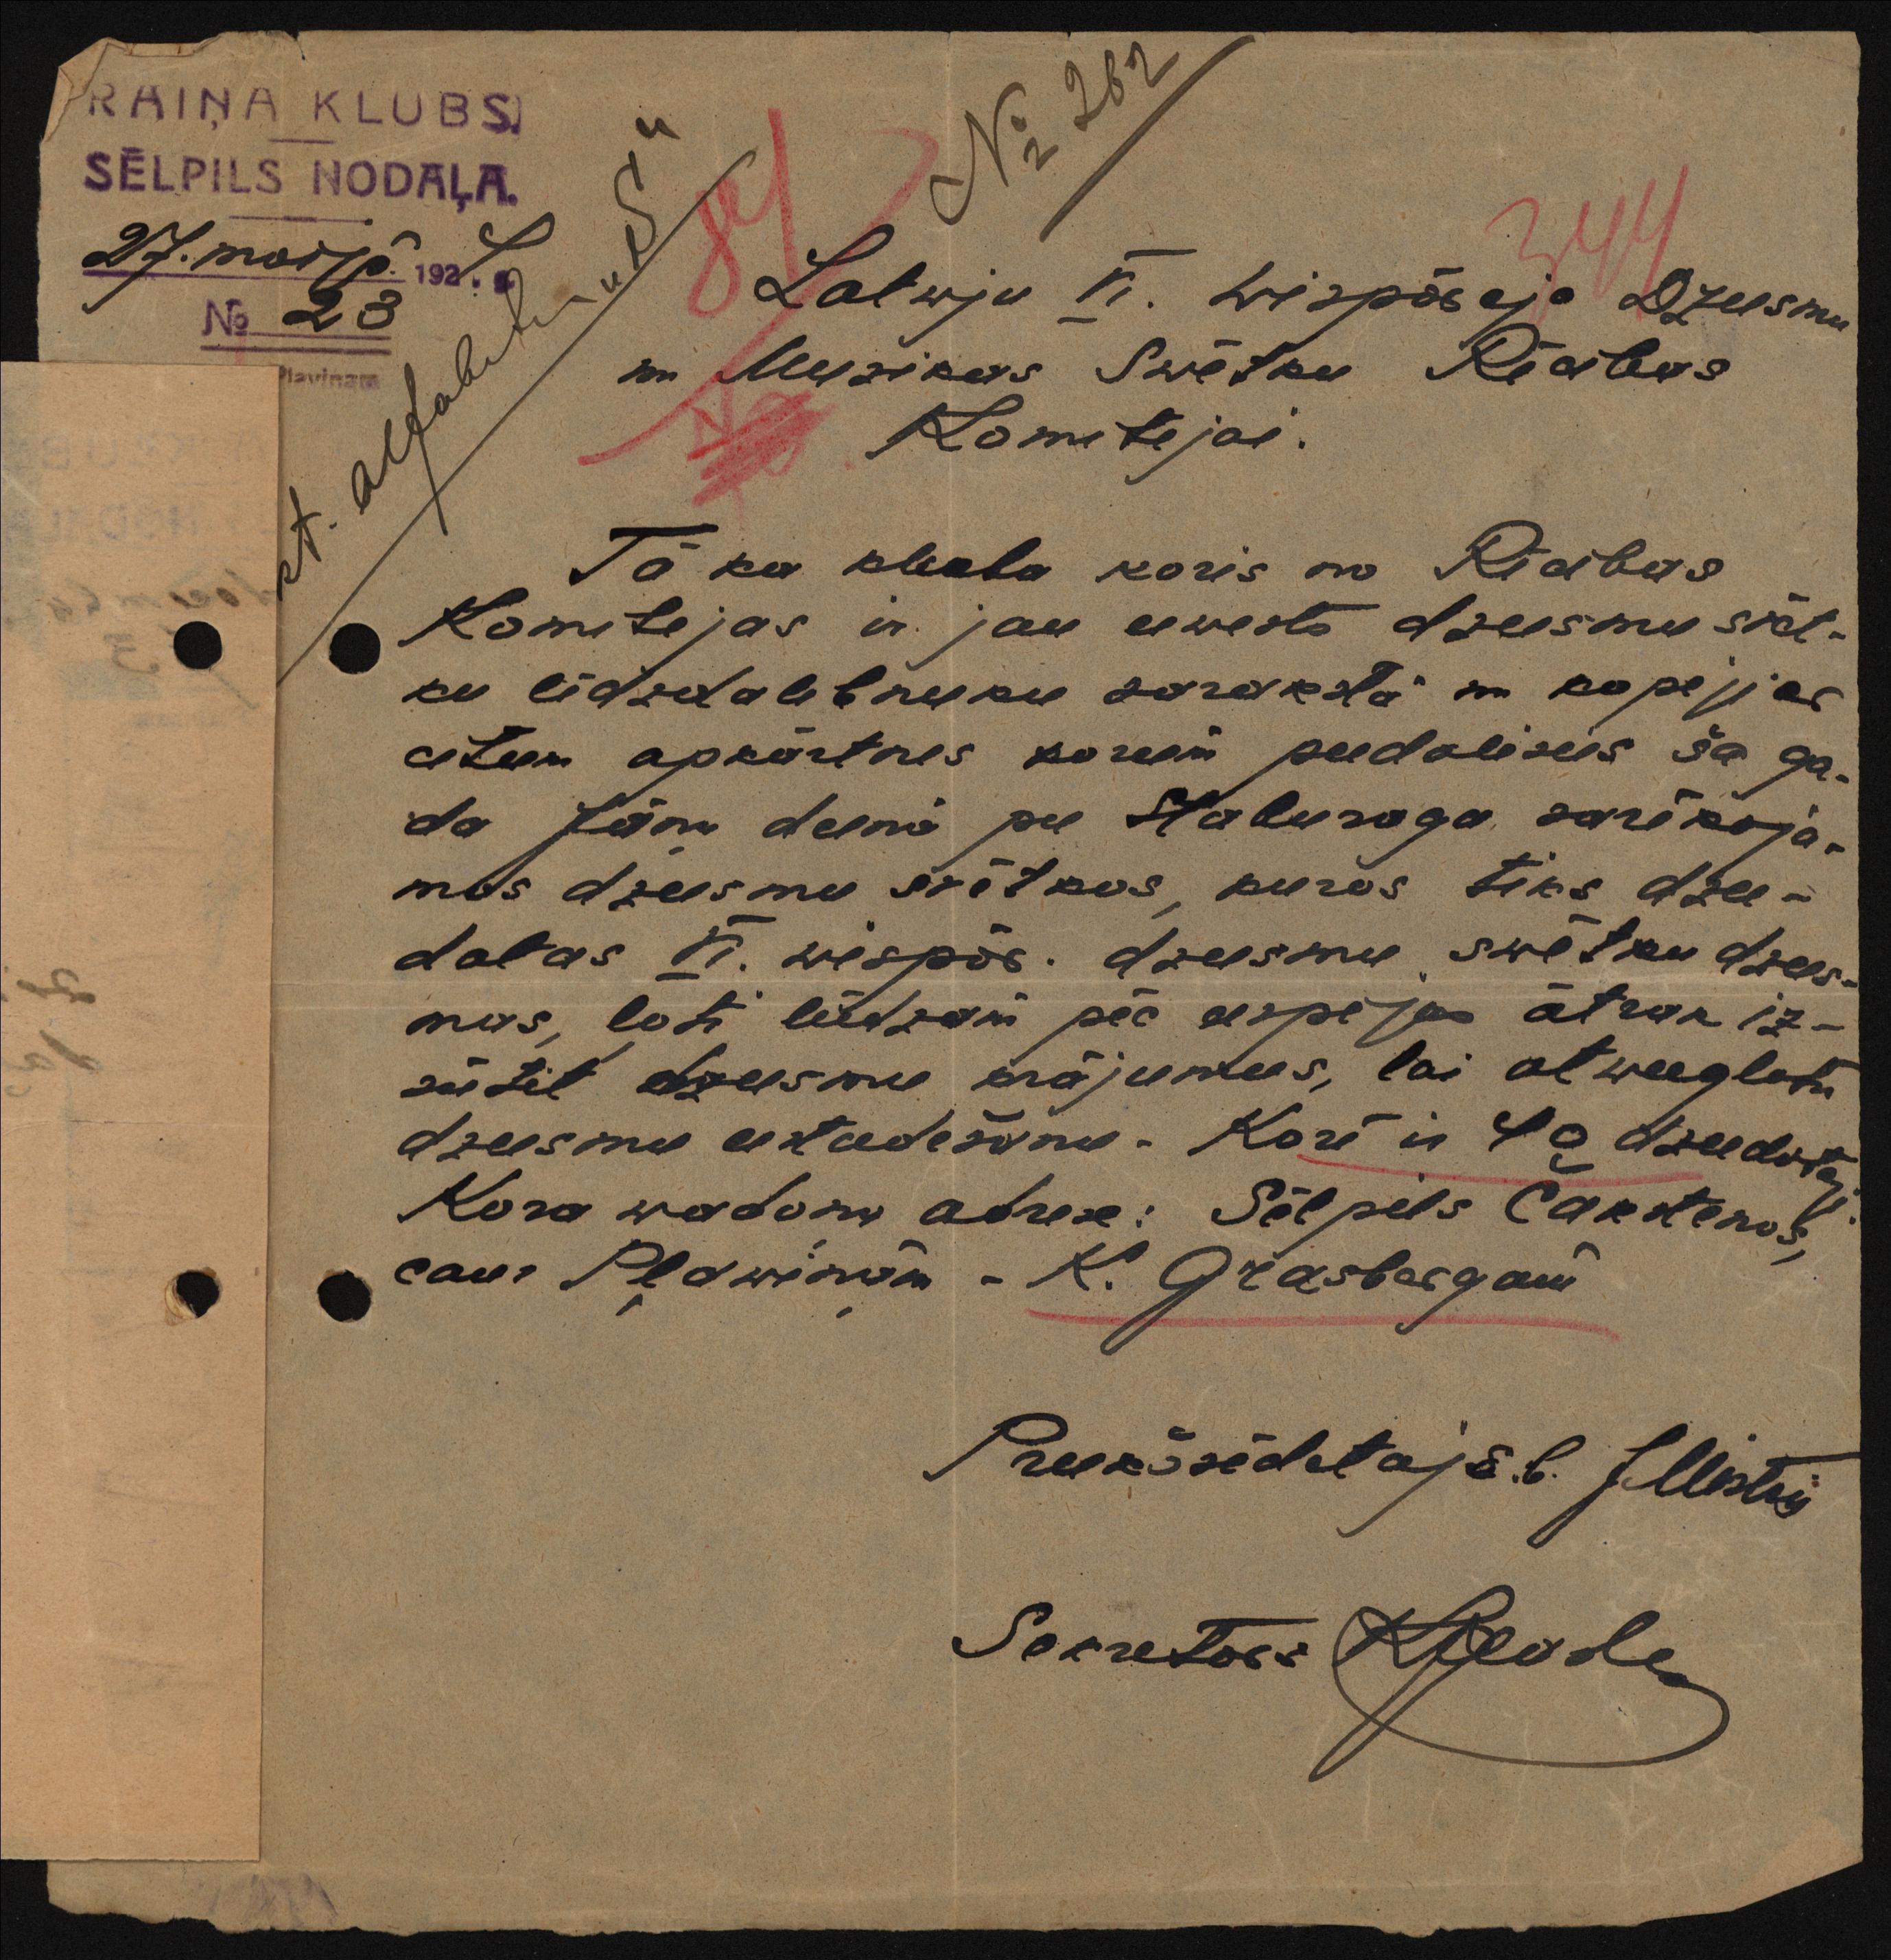 RAIŅA KLUBS.
SĒLPILS NODAĻA.
27. martā 192
№ 23
Plaviņam
№ 262
344
Latwju VI. wispārejo Dzeesmu
un Muzikas Swētku Rīcibas
Komitejai.
Tā ka kluba koris no Rīcibas
Komitejas ir jau eewests dzeesmu svēt-
ku līdzdalibneeku sarakstā un kopejjos
citeem apkārtnes koreem peedalisees šā ga-
da Jāņu deenā pee Staburaga sarīkoja-
mos dzeesmu svētkos, kuros tiks dzee-
datas VI. wispār. dzeesmu swētku dzees-
mas, ļoti lūdzam pēc eespejas ātrak iz-
sūtit dzeesmu krājumus, lai atweeglotu
dzeesmu eestudešanu. Korī ir 40 dzeedotaji.
Kora wadoņa adrese: Sēlpils Čakstenos,
caur Pļawiņām - K. Grasbergam
Preekšsēdetajs b.
Sekretars